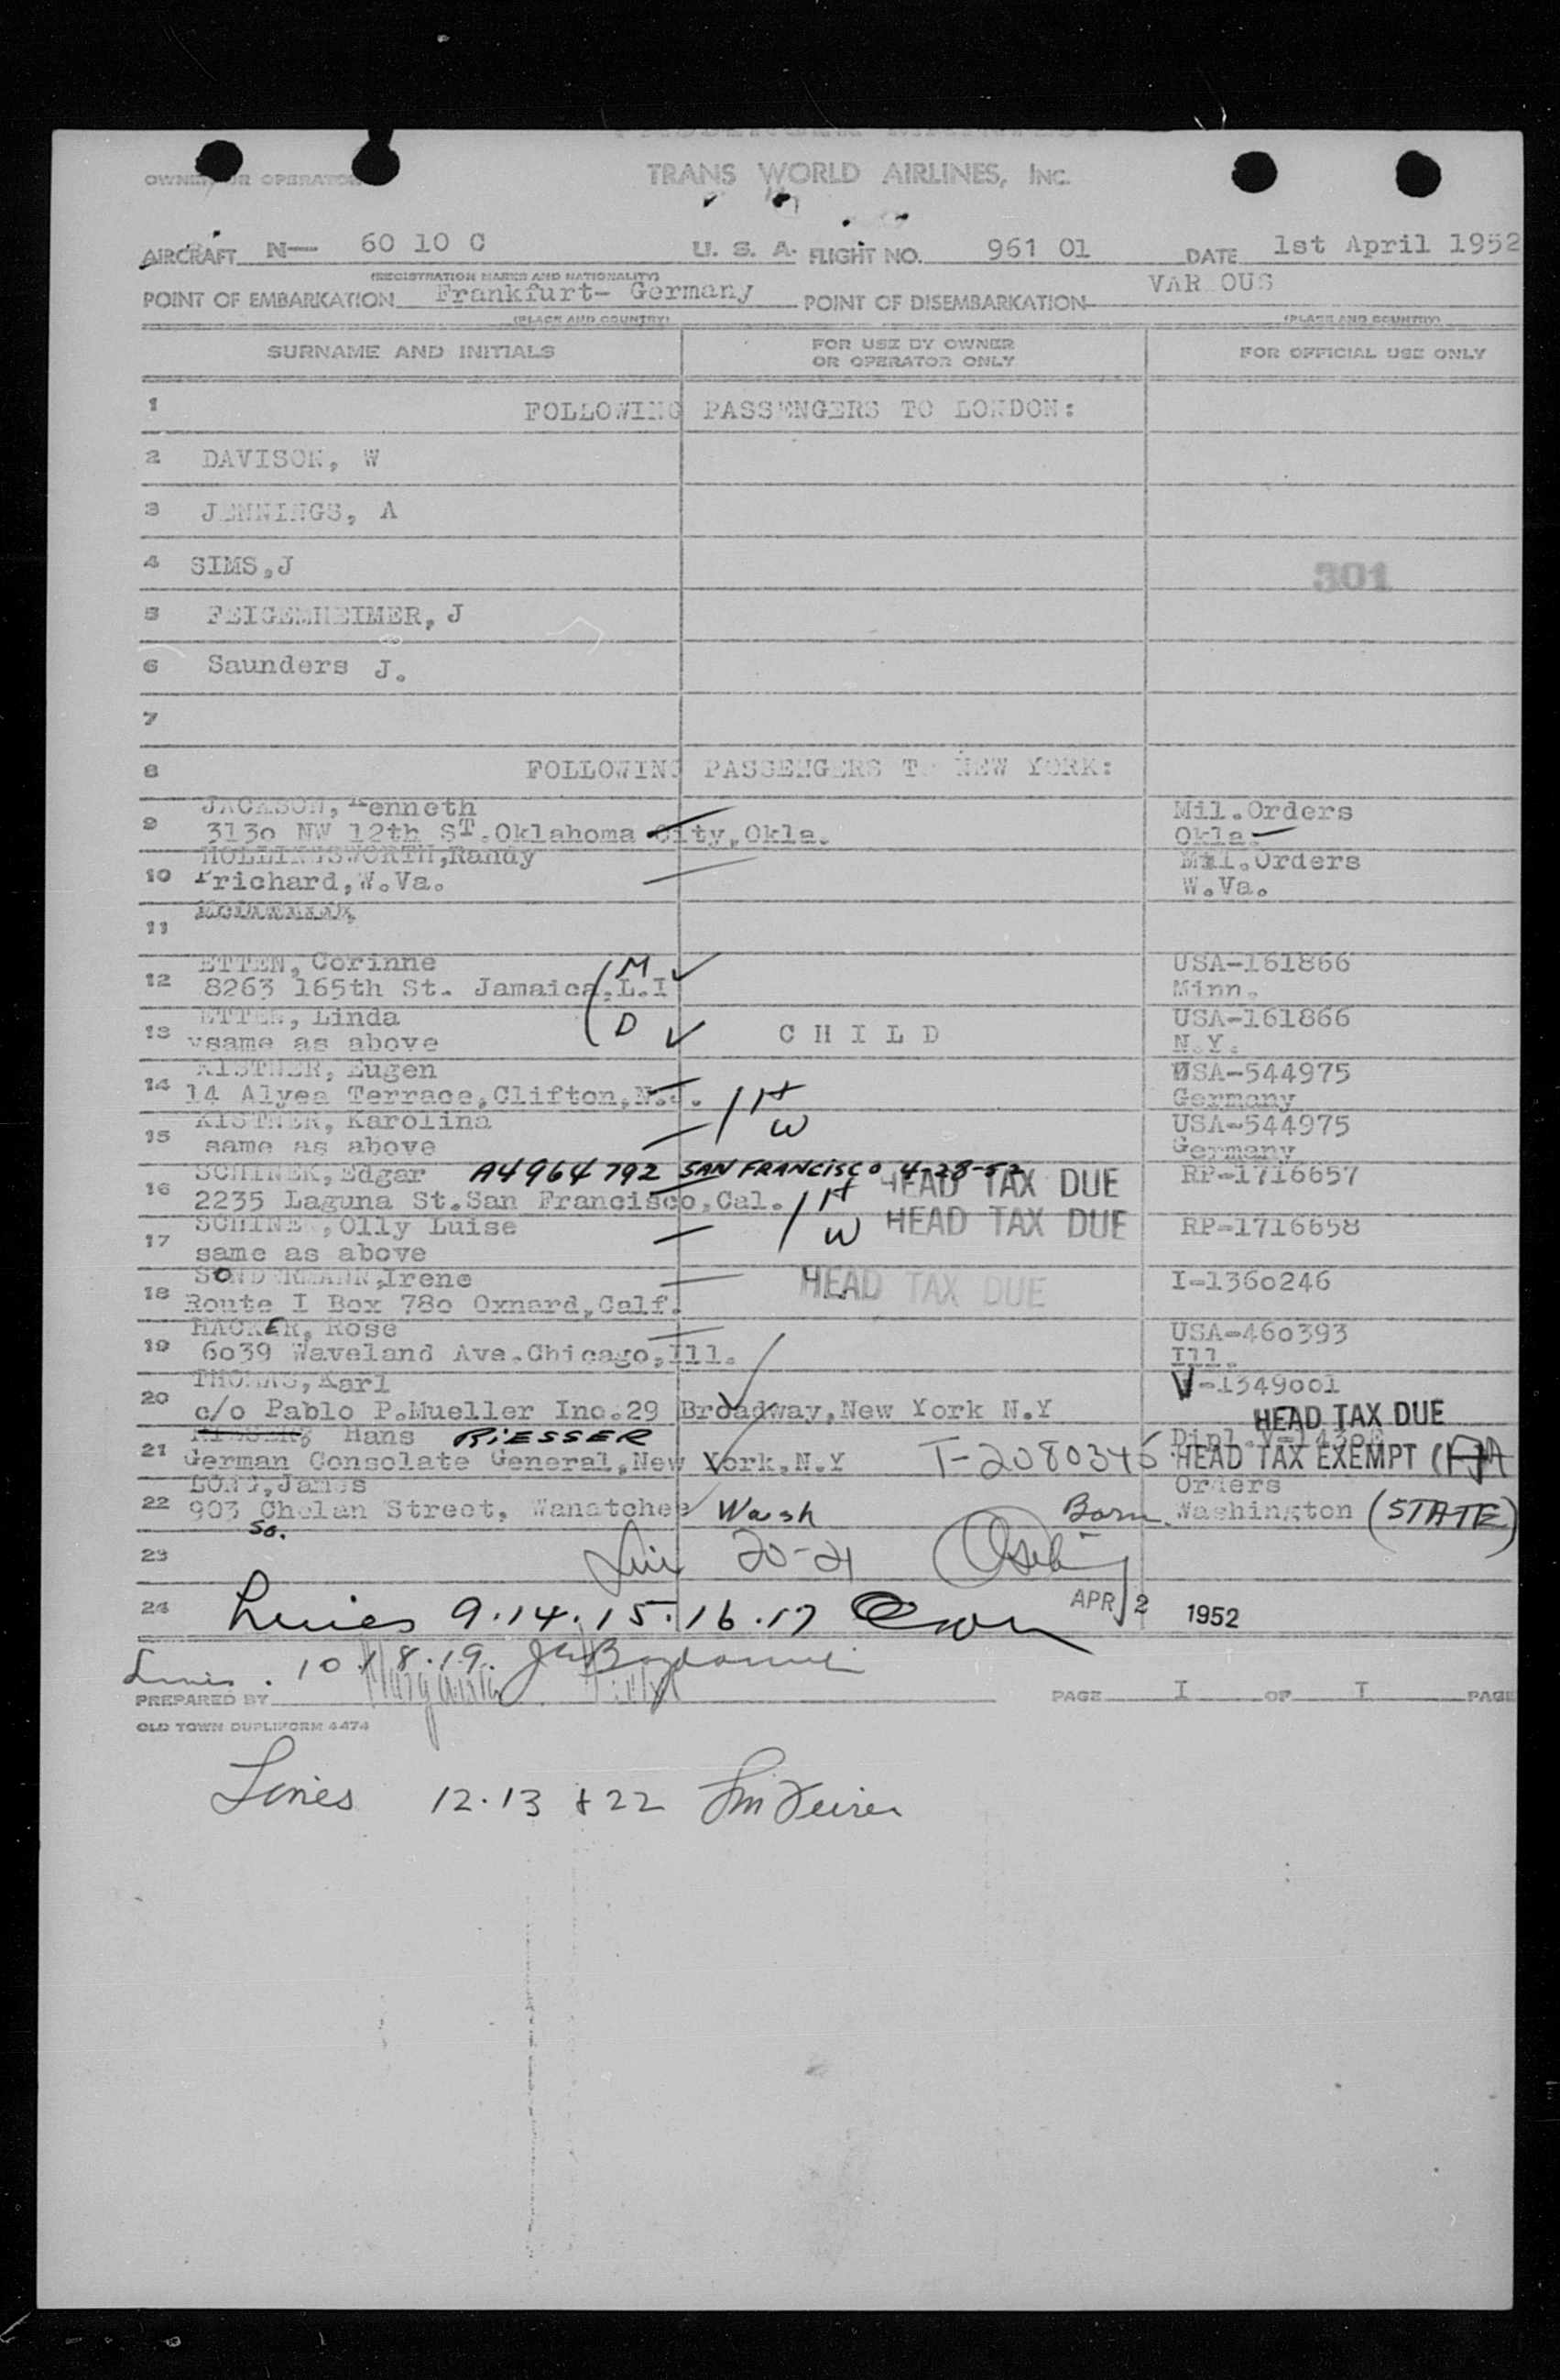 OWNER OR OPERATOR
TRANS WORLD AIRLINES, INC.
AIRCRAFT N— 60 10 C U. S. A. FLIGHT NO. 961 01 DATE 1st April 1952
(REGISTRATION MARKS AND NATIONALITY)
POINT OF EMBARKATION Frankfurt- Germany POINT OF DISEMBARKATION VAR OUS
(PLACE AND COUNTRY) (PLACE AND COUNTRY)
SURNAME AND INITIALS FOR USE BY OWNER OR OPERATOR ONLY FOR OFFICIAL USE ONLY
1 FOLLOWING PASSENGERS TO LONDON:
2 DAVISON, W
3 JENNINGS, A
4 SIMS,J 301
5 FEIGEMHEIMER, J
6 Saunders J.
7
8 FOLLOWING PASSENGERS T NEW YORK:
JACKSON, Kenneth Mil.Orders
9 313o NW 12th ST.Oklahoma City,Okla. Okla
HOLLINGSWORTH,Randy Mil.Orders
10 Prichard,W.Va. W.Va.
11
ETTEN, Corinne M USA-161866
12 8263 165th St. Jamaica,L.I Minn.
ETTEN, Linda D USA-161866
13 same as above C H I L D N.Y.
KISTNER, Eugen USA-544975
14 14 Alyea Terrace,Clifton,N.J. H Germany
KISTNER, Karolina W USA-544975
15 same as above Germany
SCHINEK,Edgar A4964792 SAN FRANCISCO 4-28-52 HEAD TAX DUE RP-1716657
16 2235 Laguna St.San Francisco,Cal. H
SCHINE ,Olly Luise W HEAD TAX DUE RP-1716658
17 same as above
SONDERMANN,Irene HEAD TAX DUE I-136o246
18 Route I Box 78o Oxnard,Calf.
HACKER, Rose USA-46o393
19 6o39 Waveland Ave.Chicago,Ill. Ill.
THOMAS,Karl V-1349oo1
20 c/o Pablo P.Mueller Inc.29 Broadway,New York N.Y HEAD TAX DUE
Hans RIESSER Dipl.
21 German Consolate General,New York,N.Y T-2080345 HEAD TAX EXEMPT
LONG,James Orders
22 903 Chelan Street, Wanatchee Wash Born Washington (STATE)
So.
23 20-21
24 Lines 9.14.15.16.17 APR 2 1952
Lines. 10.18.19.
PREPARED BY PAGE I OF I PAGE
OLD TOWN DUPLIFORM 4474
Lines 12.13 + 22